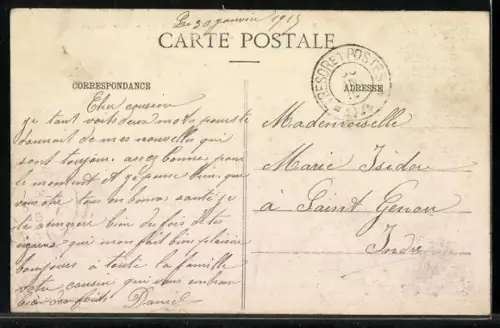 Le 30 Janvier 1915
CARTE POSTALE
TRESOR ET POSTES
CORRESPONDANCE
ADRESSE
Cher cousin
je tant vois deux mots pour te
donnait de mes nouvelles qui
sont toujour assez bonnes pour
le moment et je pense bien que
vous ete tous en bonne santé je
te remercie bien des fois de tes
cigares qui mon fait bien plaisire
bonjours à toute la famille
votre cousin qui vous embrase
bien des fois Daniel
Mademoiselle
Marie Isidor
à Saint Genou
Indre